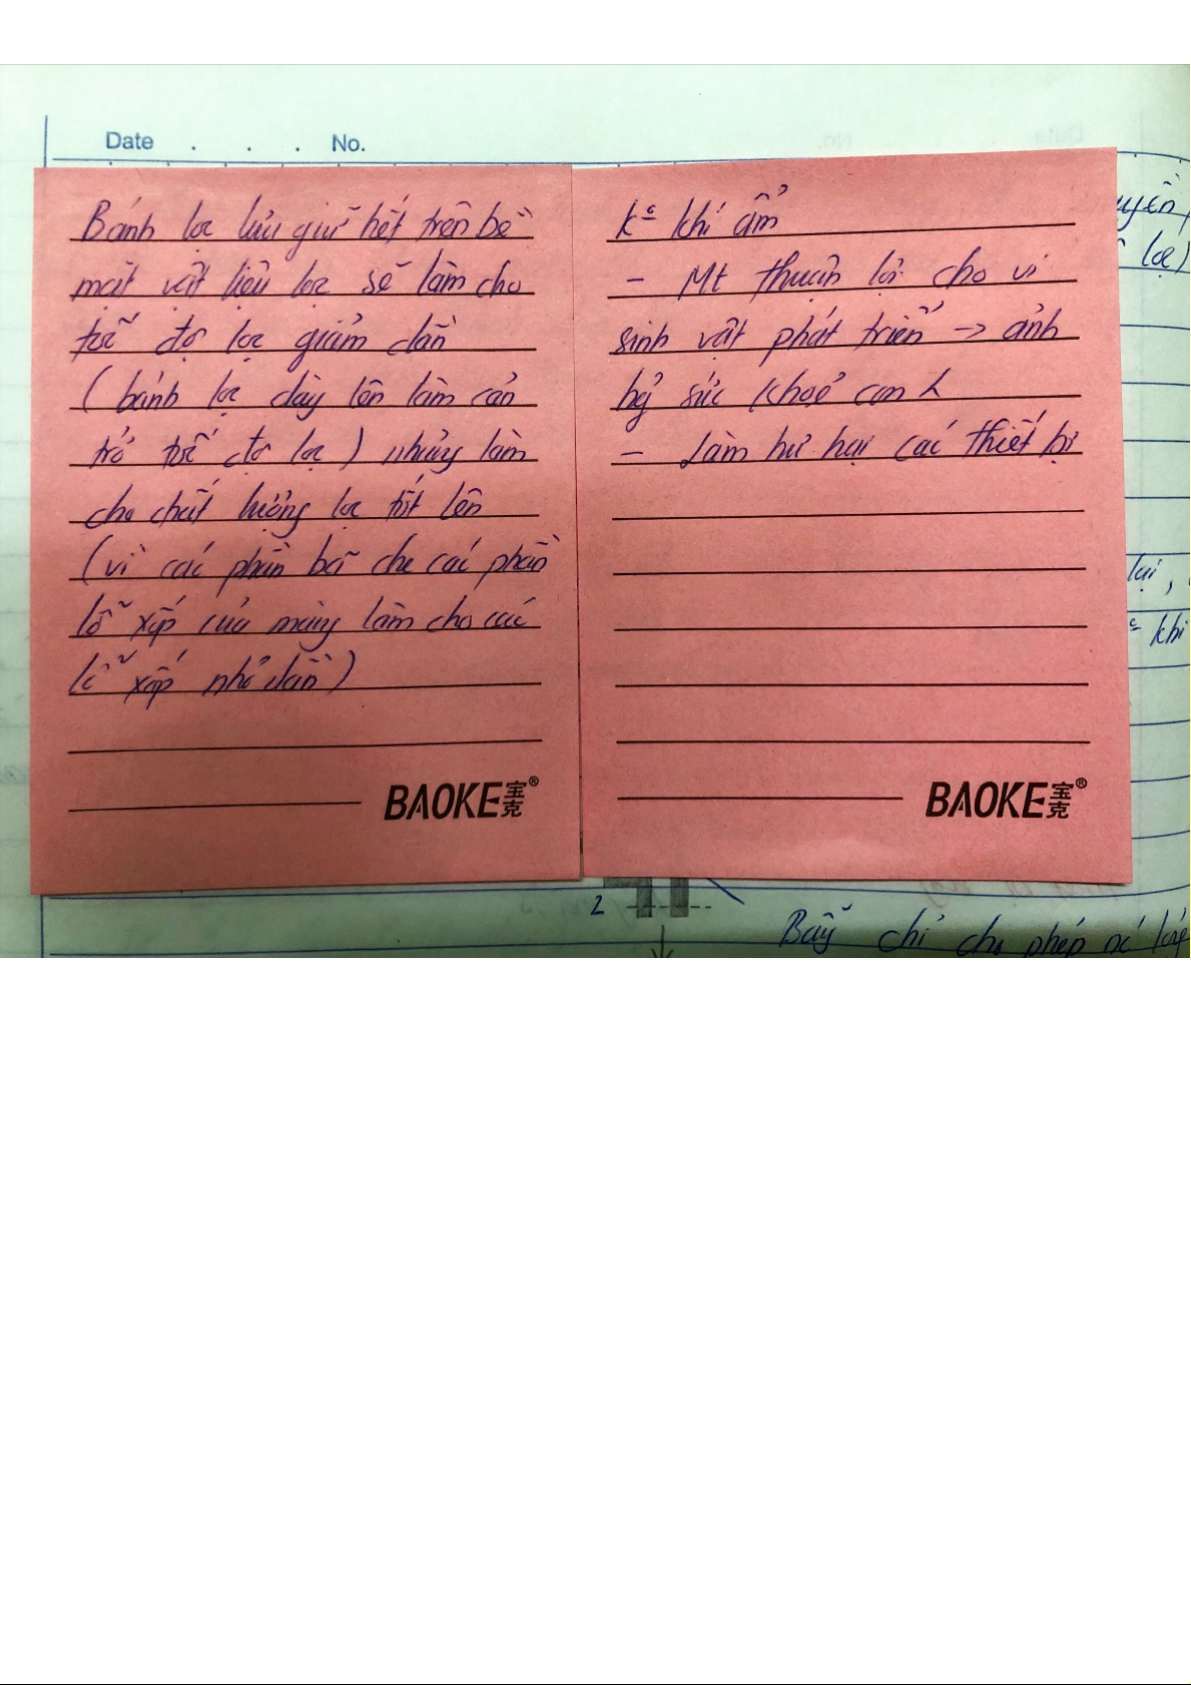 Date . . . No.
Bánh lọc lưu giữ hết trên bề
mặt vật liệu lọc sẽ làm cho
tốc độ lọc giảm dần
(bánh lọc dày lên làm cản
trở tốc độ lọc) nhưng làm
cho chất lượng lọc tốt lên
(vì các phần bã che các phần
lỗ xốp của màng làm cho các
lỗ xốp nhỏ dần)
BAOKE宝克®
k² khí ẩm
- Mt thuận lợi cho vi
sinh vật phát triển -> ảnh
hg̉ sức khoẻ con
- Làm hư hại các thiết bị
BAOKE宝克®
lọc)
lại,
khí
2
Bẫy chỉ cho phép nc lỏng